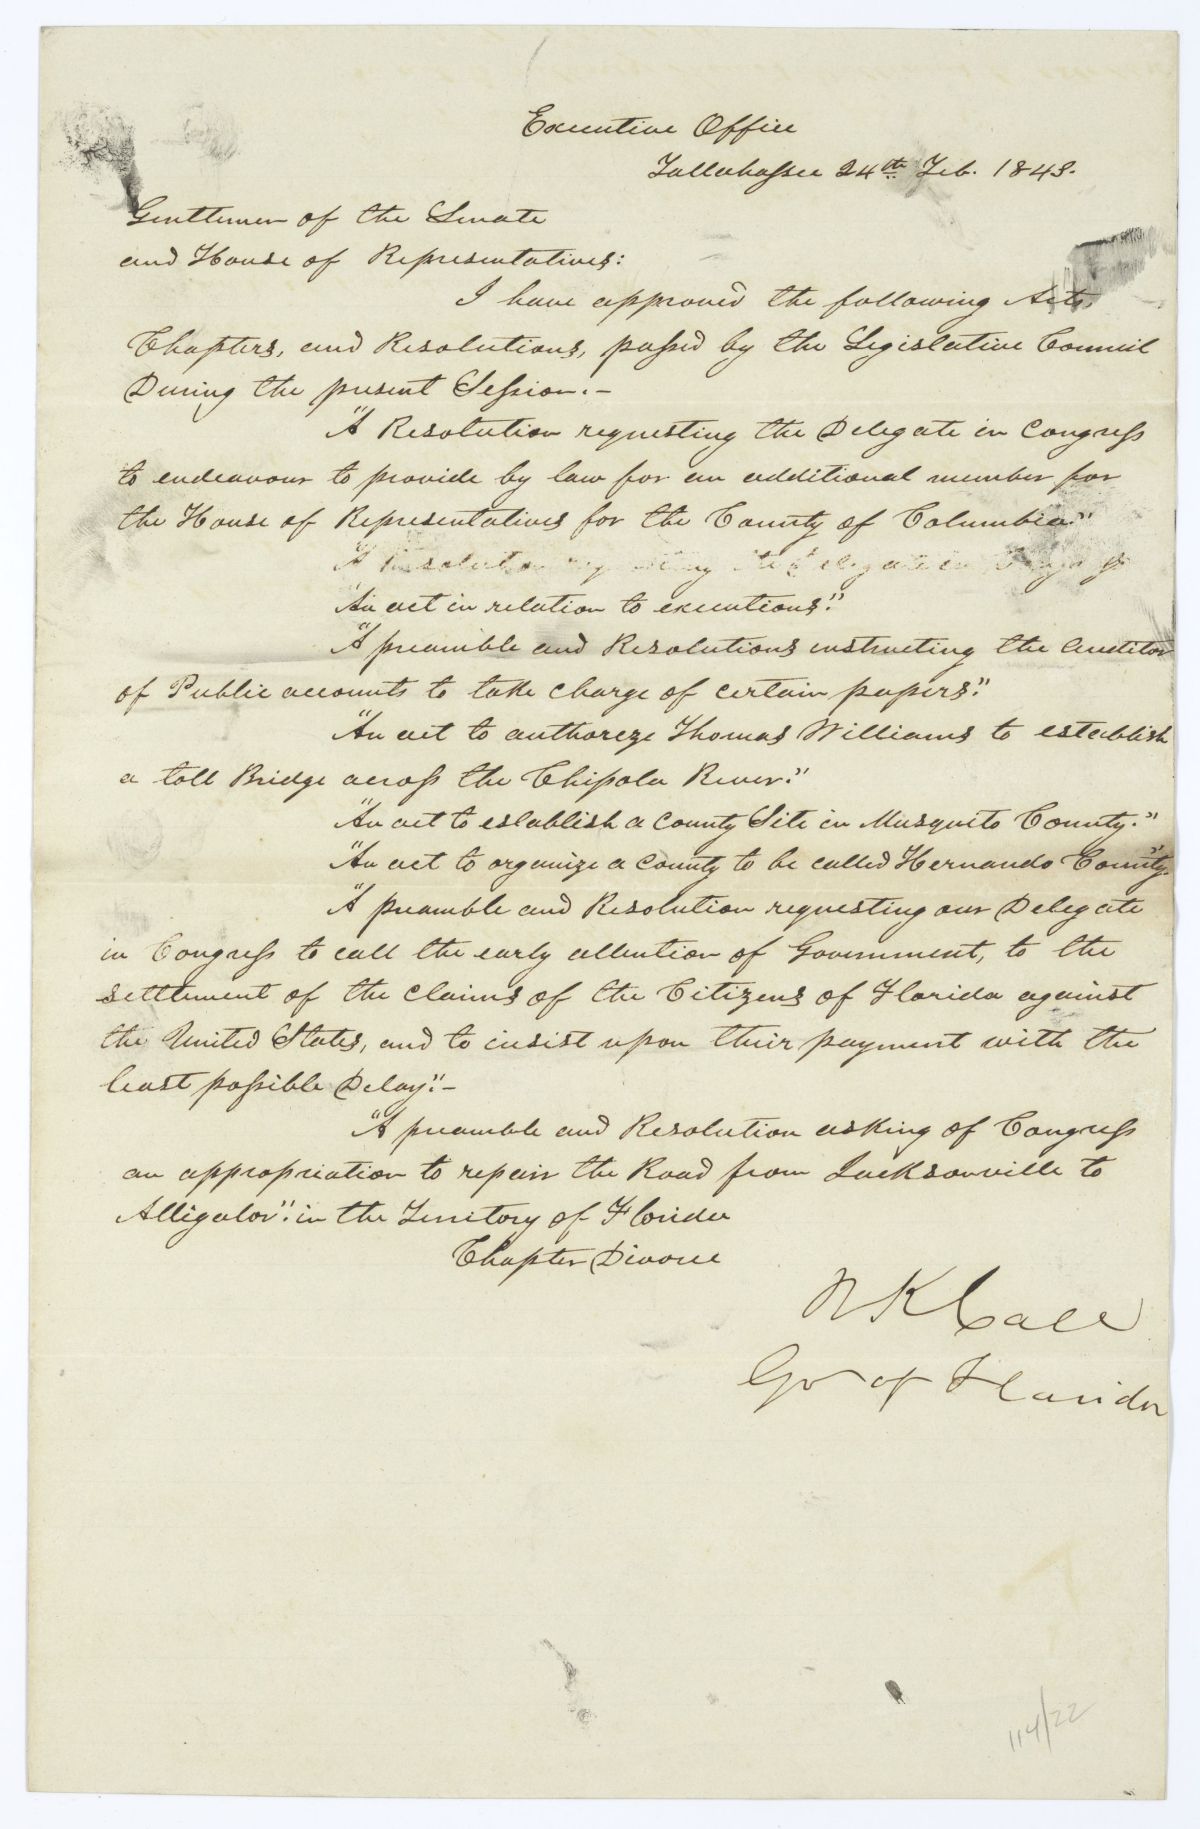 Executive Office
Tallahassee 24th Feb. 1843.
Gentlemen of the Senate
and House of Representatives:
I have approved the following Acts,
Chapters, and Resolutions, passed by the Legislative Council
During the present Session.-
"A Resolution requesting the Delegate in Congress
to endeavour to provide by law for an additional member for
the House of Representatives for the County of Columbia."
A Resolution requesting the Delegate in Congress
"An act in relation to executions."
"A preamble and Resolutions instructing the Auditor
of Public accounts to take charge of certain papers."
"An act to authoreze Thomas Williams to establish
a toll Bridge across the Chipola River."
"An act to establish a County Site in Musquito County."
"An act to organize a County to be called Hernando County."
"A preamble and Resolution requesting our Delegate
in Congress to call the early attention of Government, to the
settlement of the claims of the Citizens of Florida against
the United States, and to insist upon their payment with the
least possible Delay."-
"A preamble and Resolution asking of Congress
an appropriation to repair the Road from Jacksonville to
Alligator". in the Territory of Florida
Chapter Divorce
R K Call
Gov of Florida
114/22